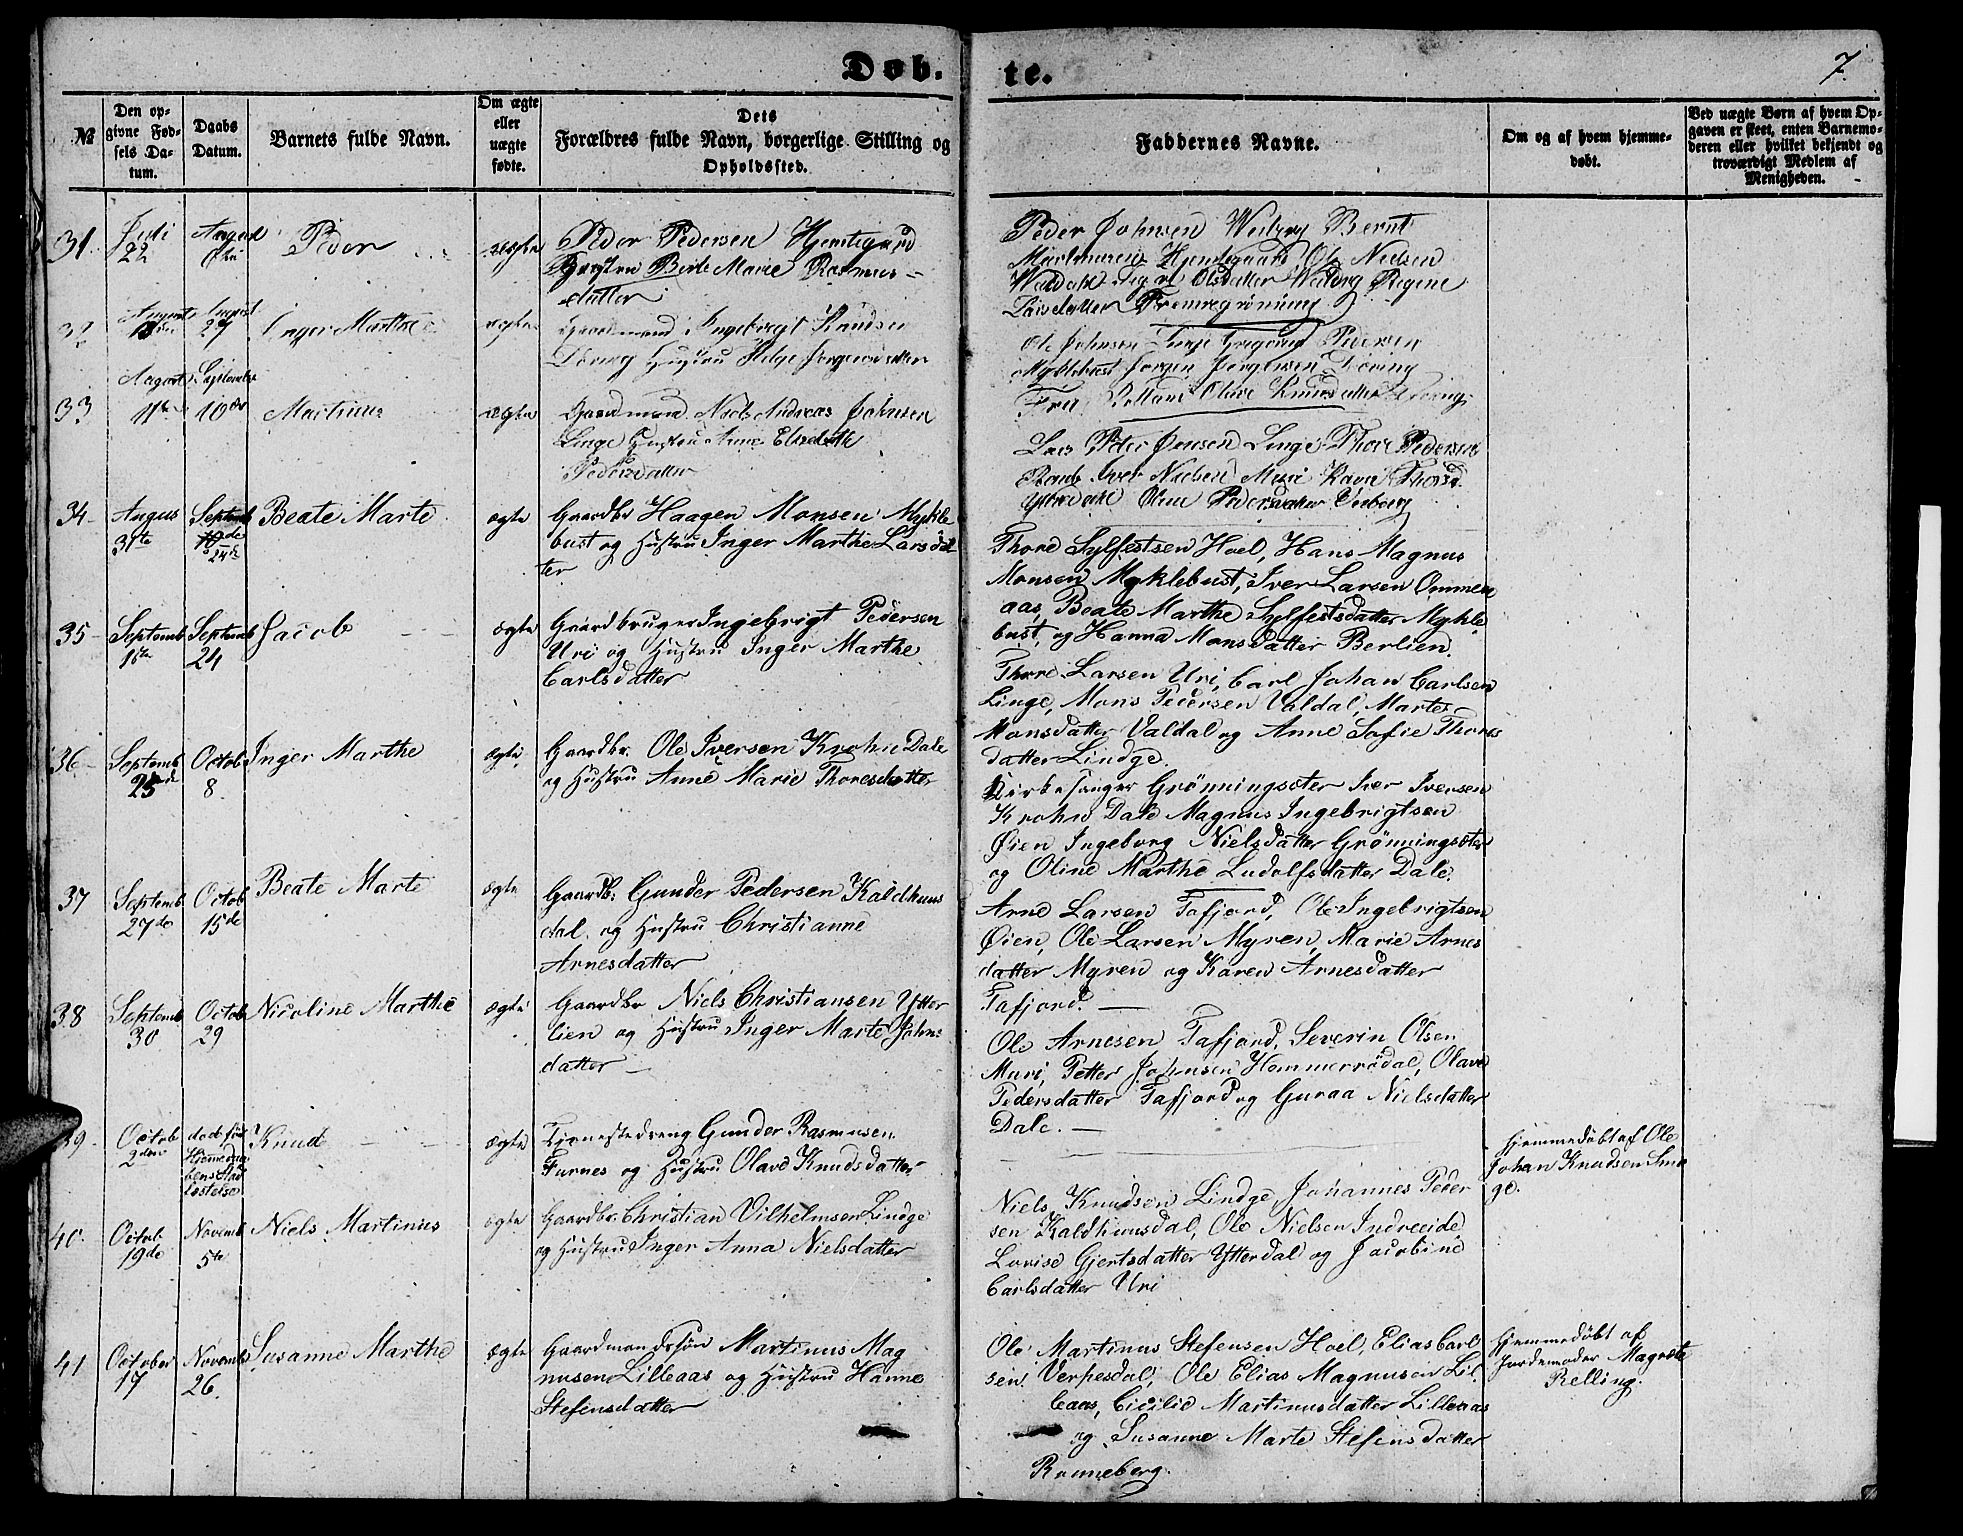 Døb. te. 7.
№
Den opgivne Fødsels Datum.
Daabs Datum.
Barnets fulde Navn.
Om ægte eller uægte fødte.
Dets Forældres fulde Navn, borgerlige Stilling og Opholdssted.
Faddernes Navne.
Om og af hvem hjemmedøbt.
Ved uægte Børn af hvem Opgaven er skeet, enten Barnemoderen eller hvilket bekjendt og troværdigt Medlem af Menigheden.
31.
Juli
22
August
Peder
ægte
Peder Pedersen
Berte Marie Rasmus-
datter
Peder Johnsen Bernt
Ole Nielsen
Olsdatter
32
August
August
27
Inger Marthe
ægte
Gaardmand Ingebrigt Knudsen
Døving Hustru
Ole Johnsen Pedersen
Myklebust Jørgen Jørgensen Døving
Olave Knudsdatter
33
August
11te
September
10de
Martinus
ægte
Gaardmand Niels Andreas Johnsen
Linge Hustru Anne Elisabeth
Pedersdatter
Lars Peter Jensen Linge Thore Pedersen
Iver Nielsen Muri
Pedersdatter
34-
Augus
31te
Septemb
10de
24de
Beate Marte
ægte
Gaardbr Haagen Monsen Mykle
bust og Hustru Inger Marthe Larsdat
ter
Thore Sylfestsen Hoel, Hans Magnus
Monsen Myklebust, Iver Larsen Ommen
aas, Beate Marthe Sylfestsdatter Mykle
bust, og Hanna Monsdatter Berlien.
35-
Septemb
16te
Septemb
24
Jacob
ægte
Gaardbruger Ingebrigt Pedersen
Uri og Hustru Inger Marthe
Carlsdatter
Thore Larsen Uri, Carl Johan Carlsen
Linge, Mons Pedersen Valdal, Marte
Monsdatter Valdal og Anne Sofie Thores
datter Lindge.
36-
Septemb
25de
Octob
8.
Inger Marthe
ægte
Gaardbr. Ole Iversen Krohn Dale
og Hustru Anne Marie Thoresdatter
Kirkesanger Grönningsæter Iver Iversen
Krohn Dale Magnus Ingebrigtsen
Øien Ingeborg Nielsdatter Grönningsæter
og Oline Marthe Ludolfsdatter Dale.
37
Septemb
27de
Octob
15de
Beate Marte
ægte
Gaardb. Gunder Pedersen Kaldhuus
dal og Hustru Christianne
Arnesdatter
Arne Larsen Tafjord, Ole Ingebrigtsen
Øien, Ole Larsen Myren, Marie Arnes
datter Myren og Karen Arnesdatter
Tafjord.—
38
Septemb
30
Octob
29
Nicoline Marthe
ægte
Gaardbr Niels Christiansen Ytter
lien og Hustru Inger Marte Johns
datter—
Ole Arnesen Tafjord, Severin Olsen
Muri, Petter Johnsen Hammersdal, Olave
Pedersdatter Tafjord og Guraa Nielsdatter
Dale.—
39-
Octob
2den
død før
Knud
ægte
Tjenestedreng Gunder Rasmusen
Furnes og Hustru Olave Knudsdatter
hjemmedøbt af Ole
Johan Knudsen Smo
ge.
40.
Octob.
19de
Novemb
5te
Niels Martinus
ægte
Gaardbr. Christian Vilhelmsen Lindge
og Hustru Inger Anna Nielsdatter
Niels Knudsen Lindge, Johannes Peder
sen Kaldhuusdal, Ole Nielsen Indreeide,
Lovise Gjertsdatter Ytterdal og Jacobine
Carlsdatter Uri
41
October
17
Novemb
26.
Susanne Marthe
ægte
Gaardmandssön Martinus Mag
nusen Lilleaas og Hustru Hanne
Stefensdatter
Ole Martinus Stefensen Hoel, Elias Carl
sen Verpesdal, Ole Elias Magnusen Lil
leaas, Cicilie Martinusdatter Lilleaas
og Susanne Marte Stefensdatter
Ronneberg.
hjemmedøbt af
Jordemoder Magrete
Relling.